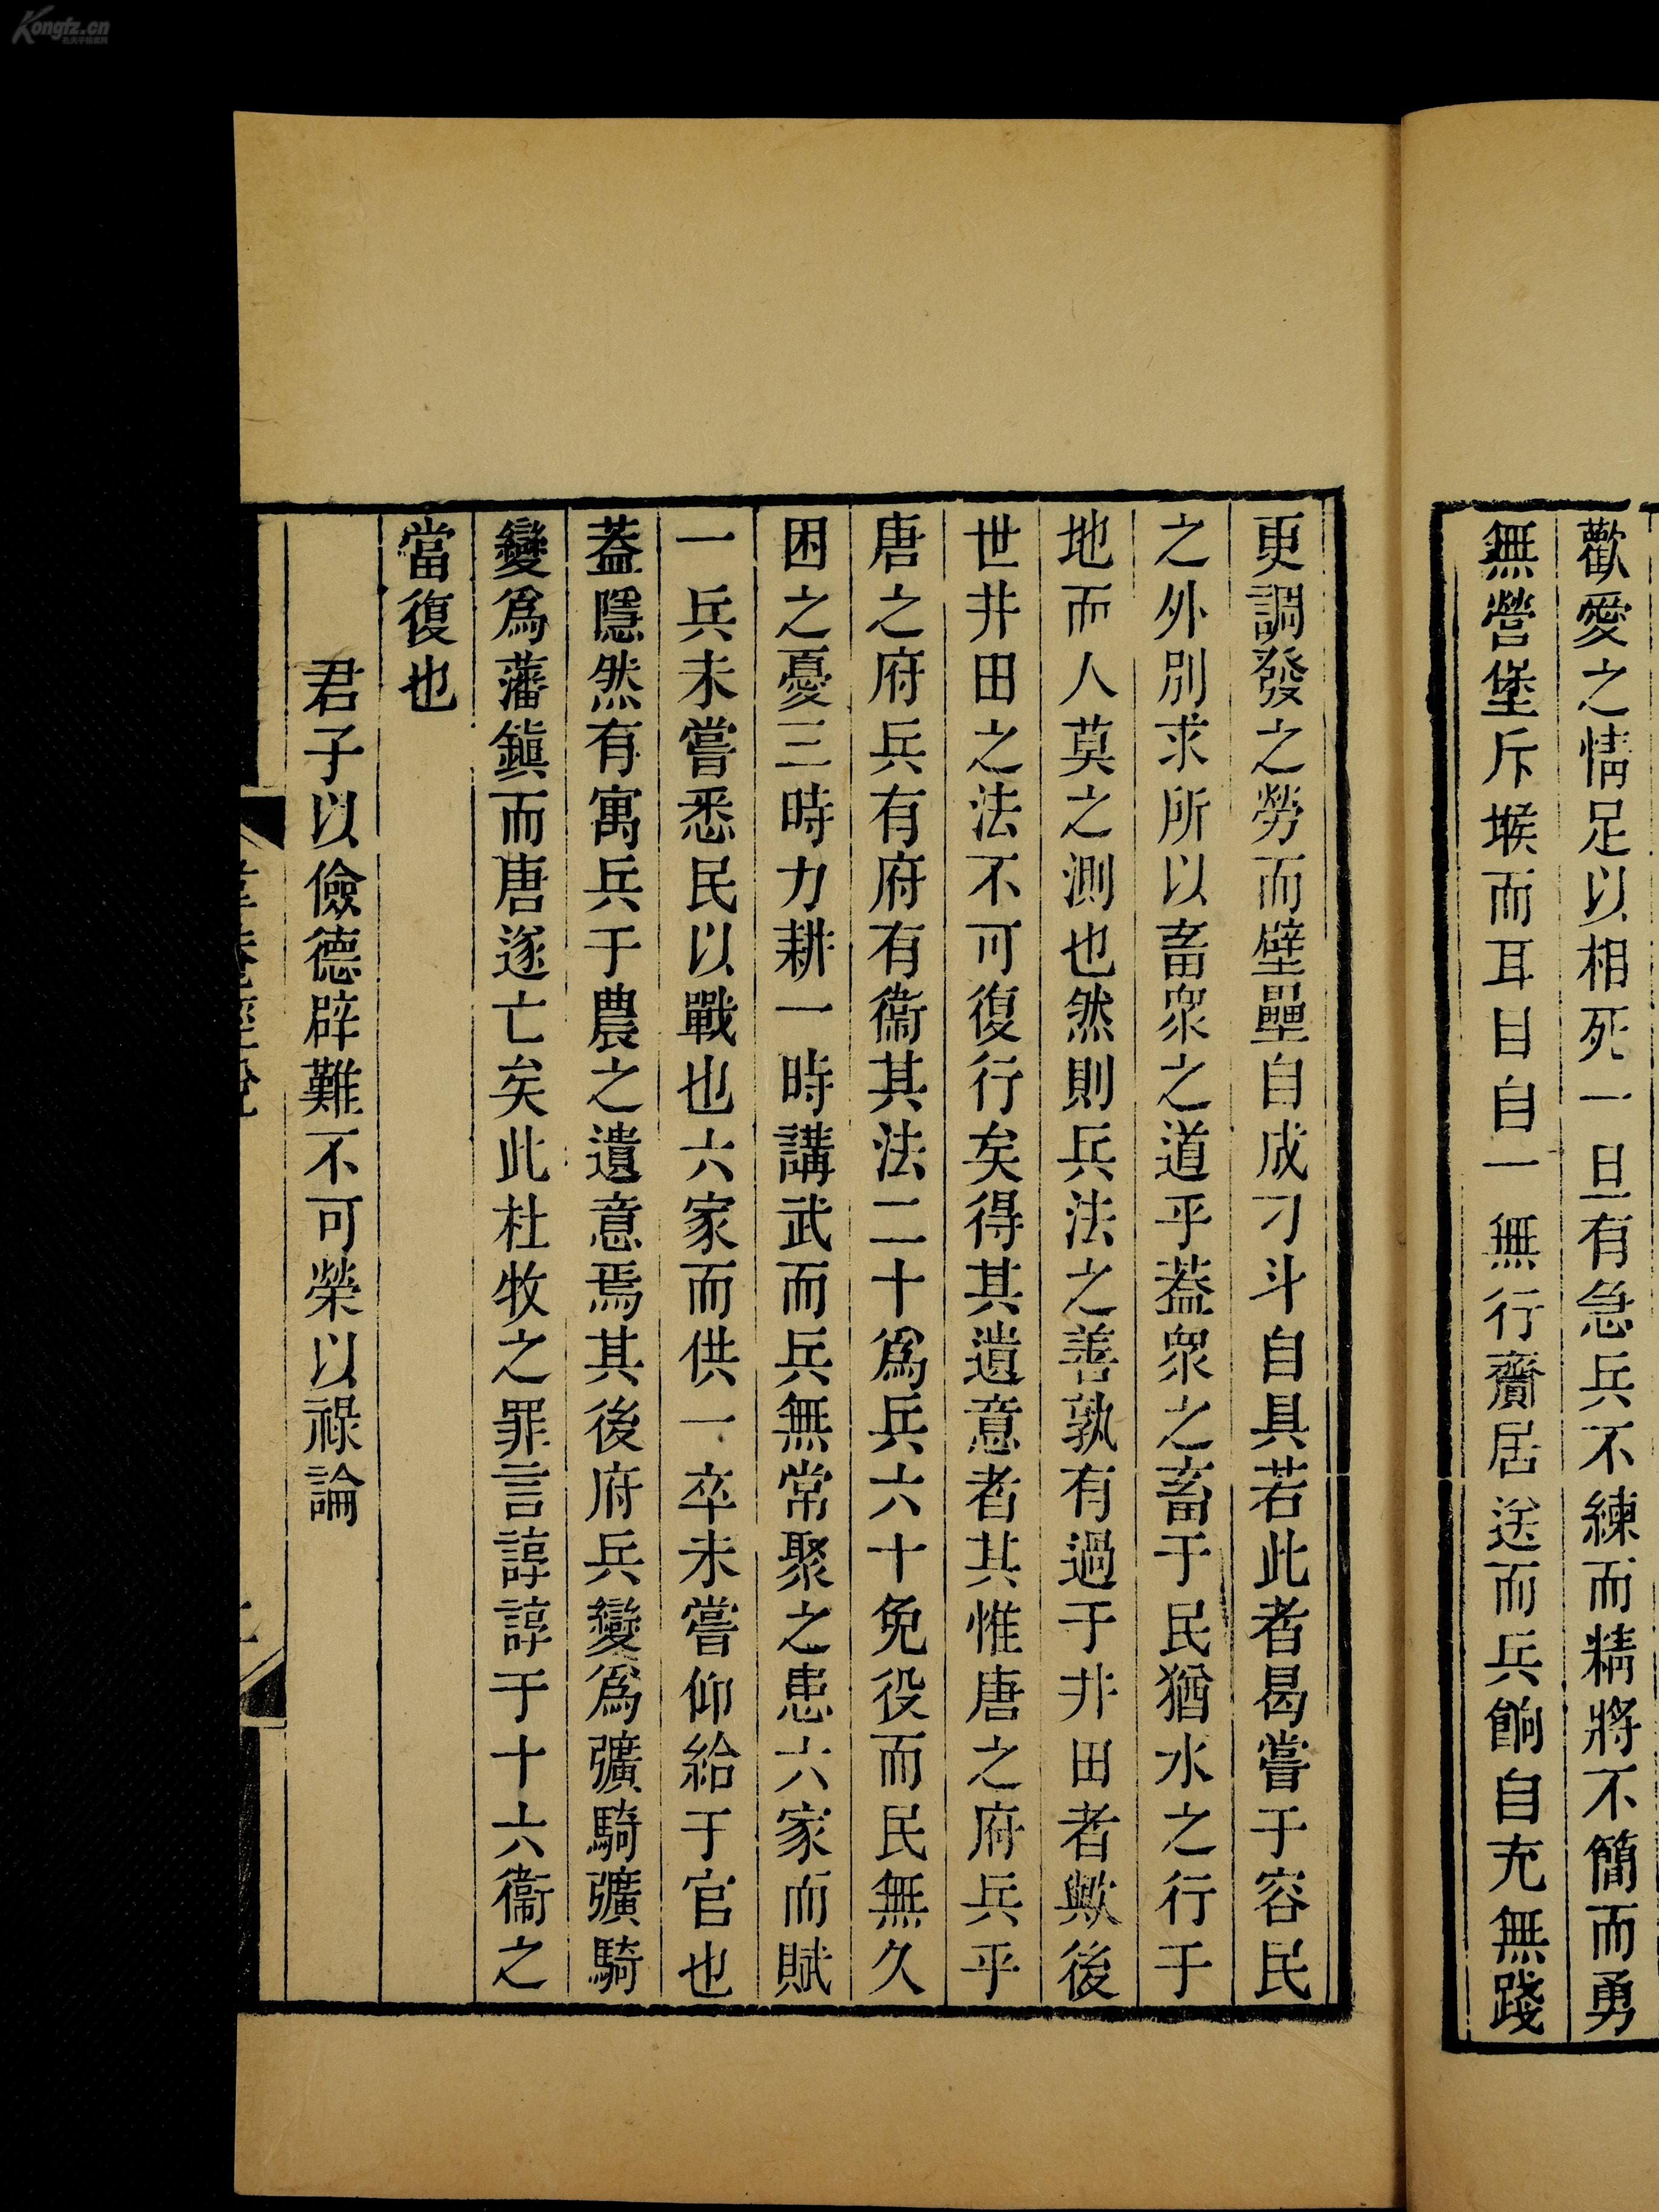 歡愛之情足以相死一旦有急兵不練而精將不簡而勇
無營堡斥堠而耳目自一無行齎居送而兵餉自充無踐
更調發之勞而壁壘自成刁斗自具若此者曷嘗于容民
之外別求所以畜眾之道乎蓋眾之畜于民猶水之行于
地而人莫之測也然則兵法之善孰有過于井田者歟後
世井田之法不可復行矣得其遺意者其惟唐之府兵乎
唐之府兵有府有衞其法二十爲兵六十免役而民無久
困之憂三時力耕一時講武而兵無常聚之患六家而賦
一兵未嘗悉民以戰也六家而供一卒未嘗仰給于官也
蓋隱然有寓兵于農之遺意焉其後府兵變爲彍騎彍騎
變爲藩鎮而唐遂亡矣此杜牧之罪言諄諄于十六衞之
當復也
君子以儉德辟難不可榮以祿論
Kongfz.cn